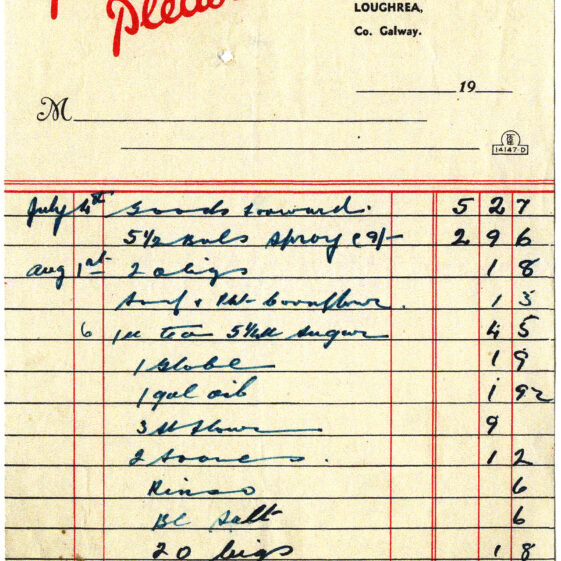 Please
LOUGHREA,
Co. Galway.
19
M
14147-D
July 4th Goods forward. 5 2 7
5½ Bols Spray @ 9/- 2 9 6
Aug 1st 2 1 8
+ Cornflour. 1 3
6 tea sugar 4 5
1 Globe 1 9
1 gal oil 1 9½
3 st flour 9
2 1 2
Rinso 6
Bc Salt 6
20 1 8